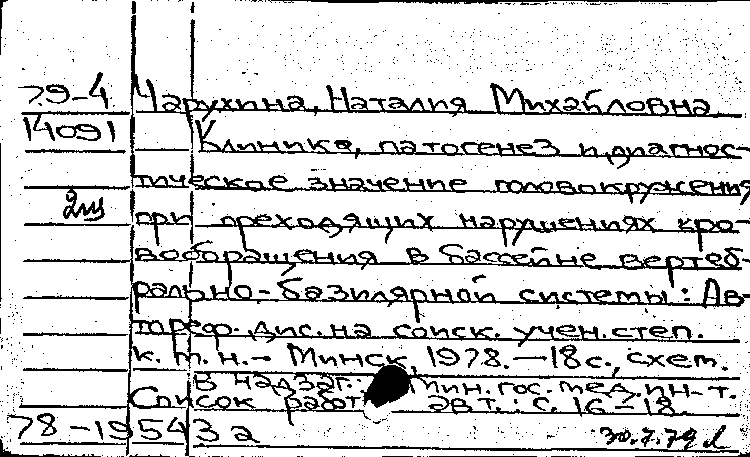 79-4 Чарухина, Наталия Михайловна
14091 Клиника, патогенез и диагнос-
тическое значение головокружения
2м
при преходящих нарушениях кро-
вообращения в бассейне вертеб-
рально-базилярной системы: Ав-
тореф. дис. на соиск. учен. степ.
к. м. н. - Минск, 1978. - 18 с., схем.
В надзаг.: Мин. гос. мед. ин-т.
Список работ авт.: с. 16-18.
78-19543а 30.7.79